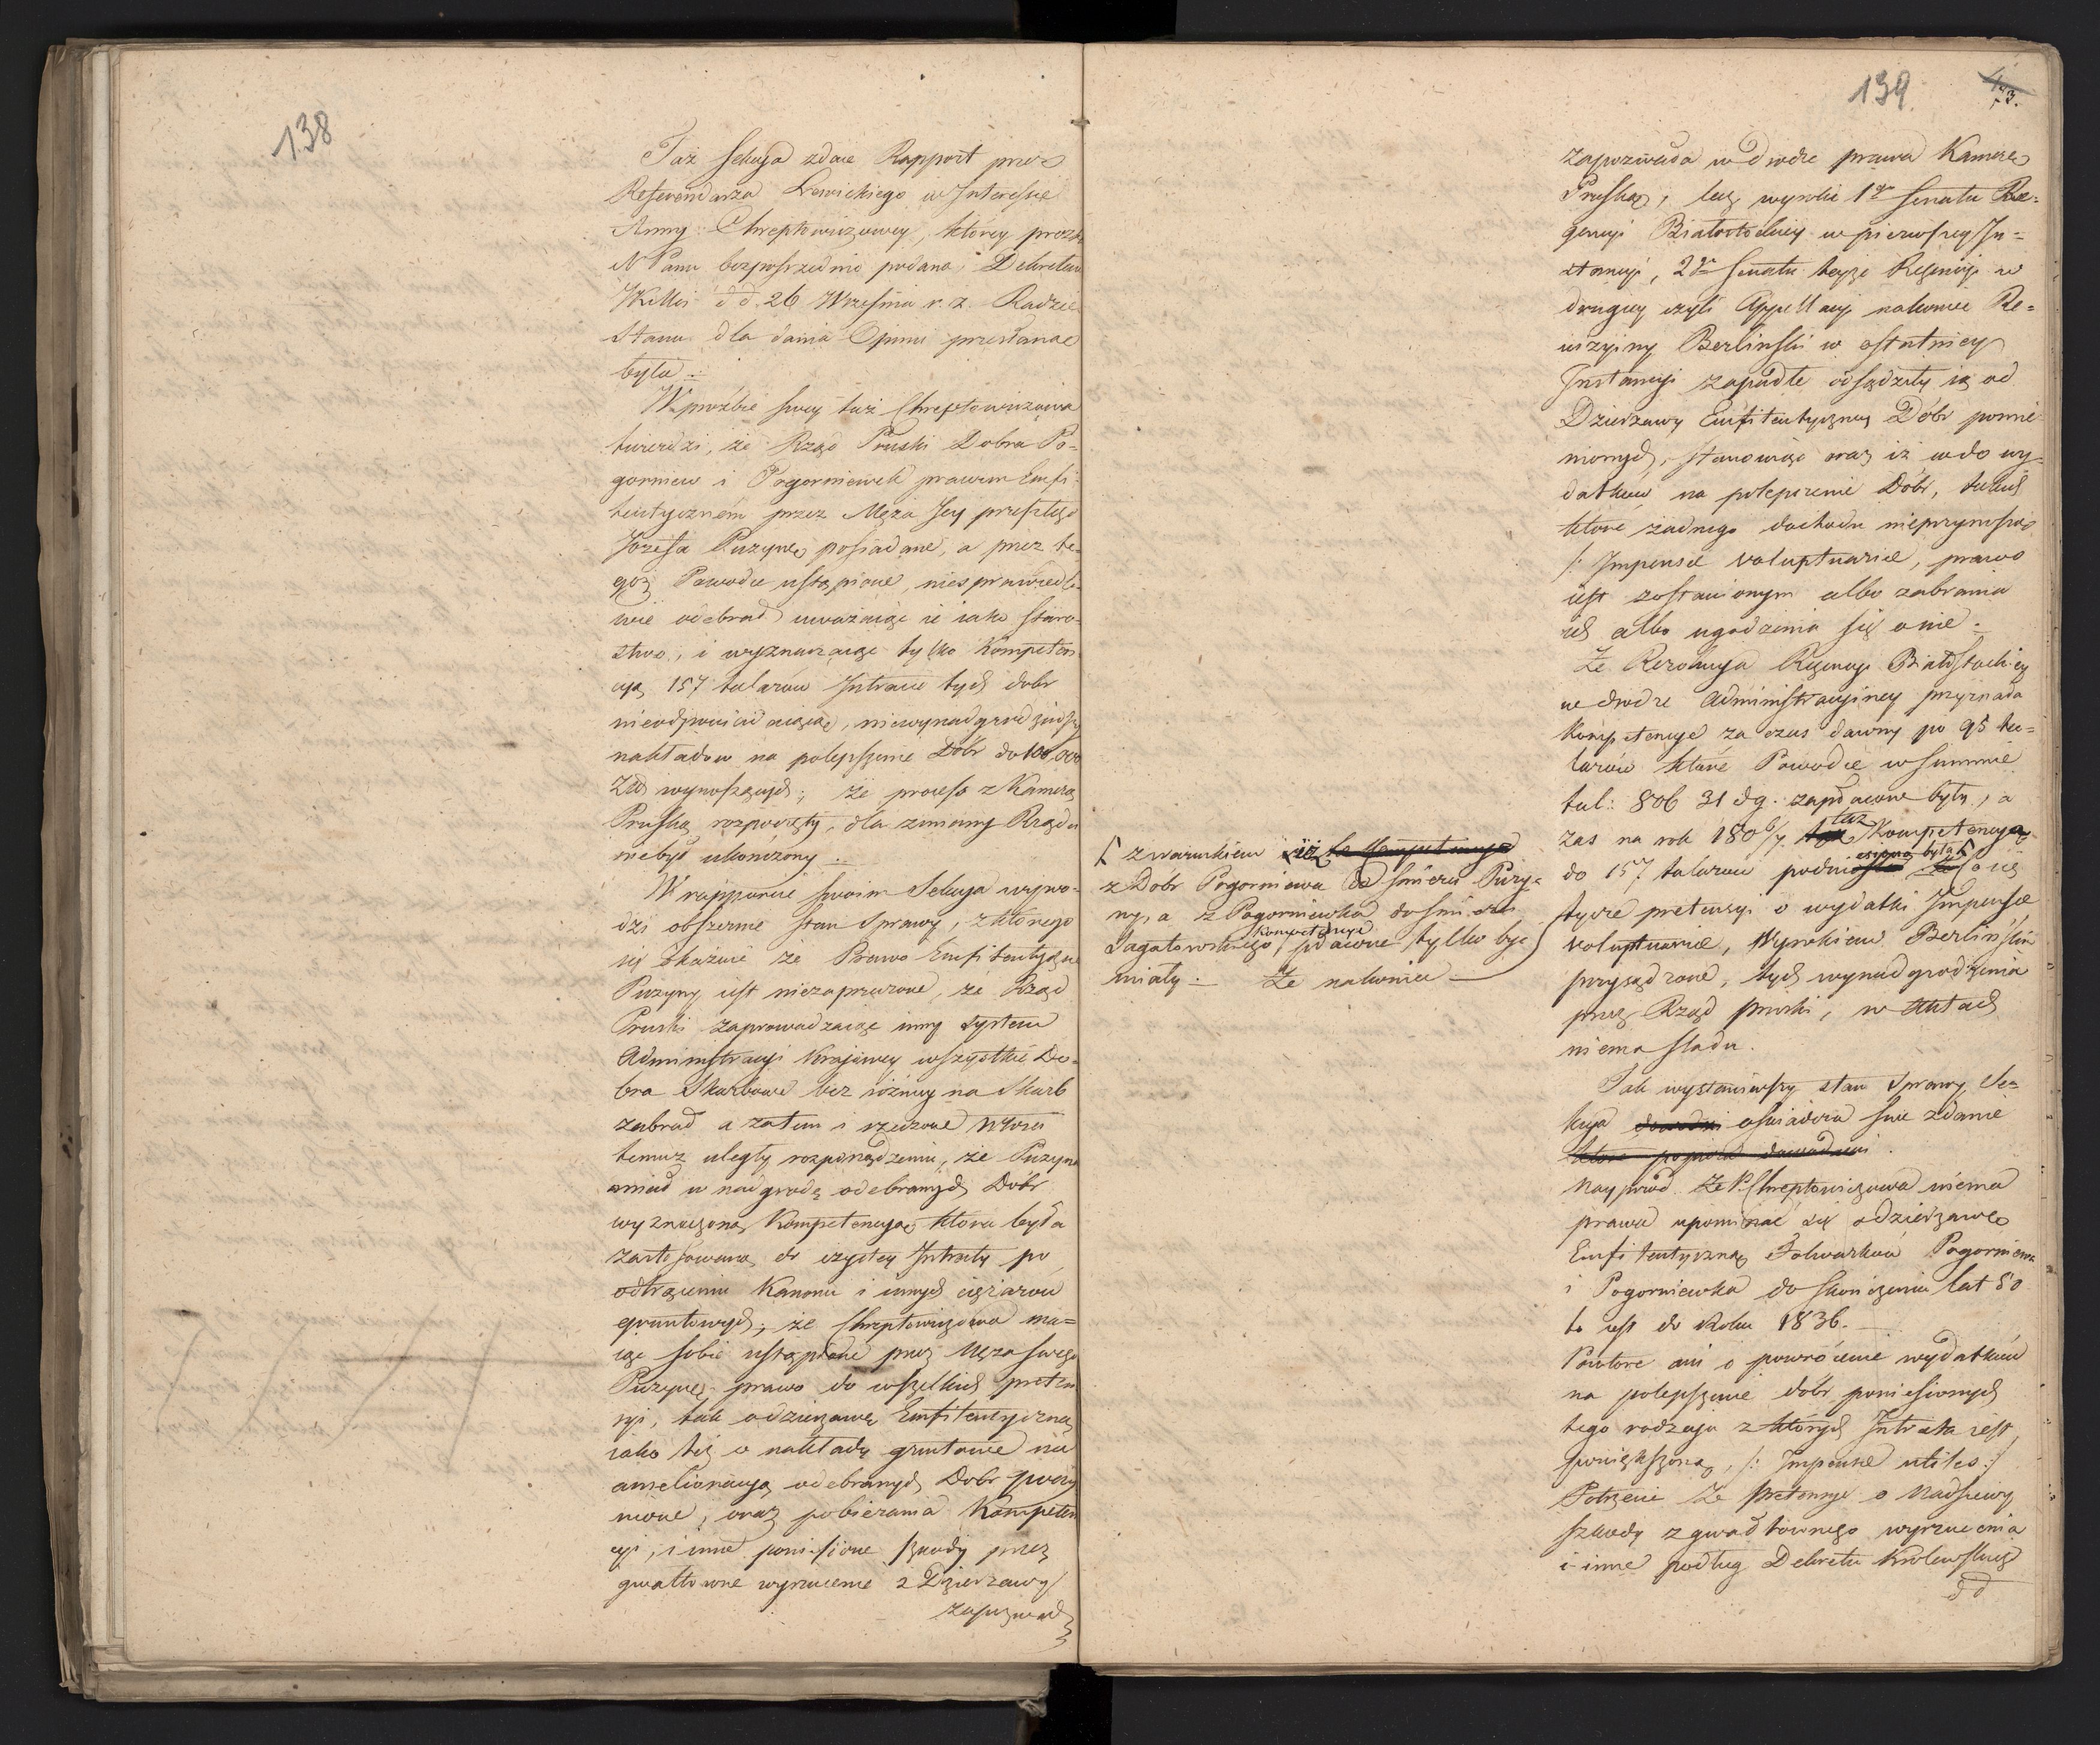 138
Taż Sekcya zdaie Rapport przez
Referendarza Lewickiego w Interessie
Anny Chreptowiczowey, którey prozba
N Panu bezpośrzednio podana, Dekretem
JKMci d d. 26 Września r. z. Radzie
Stanu dla dania Opinii przesłana
była.
W prożbie swey taż Chreptowiczowa
twierdzi, że Rząd Pruski Dobra Po-
gorniew i Pogorniewek prawem Emfi-
teutycznem przez Męża Jey przeszłego
Józefa Puzynę posiadane, a przez te-
goż Powodce ustąpione, niesprawiedli-
wie odebrał uważaiąc ie iako Staro-
stwo, i wyznaczaiąc tylko Kompeten-
cyą 157 talarów Intracie tych dobr
nieodpowiadaiącą, niewynadgrodziwszy
nakładow na polepszenie Dóbr do 100,000
Złł wynoszących; że process z Kamerą
Pruską rozpoczęty, dla zmiany Rządu
niebył ukonczony.
W rapporcie swoim Sekcya wywo-
dzi obszernie stan Sprawy, z którego
się okazuie że Prawo Emfiteutyczne
Puzyny iest niezaprzeczone, że Rząd
Pruski zaprowadzaiąc inny System
Administracyi Kraiowey wszystkie Do-
bra Skarbowe bez różnicy na Skarb
zabrał a zatem i rzeczone Włości
temuż uległy rozporządzeniu, że Puzyna
miał w nadgrodę odebranych Dobr
wyznaczoną Kompetencyą, która była
zastosowana do czystey Intraty po
odtrąceniu Kanonu i innych ciężarow
gruntowych; że Chreptowiczowa ma-
iąc sobie ustąpione przez Męża swego
Puzynę prawo do wszelkich preten-
syi, tak o dzierżawę Emfiteutyczną
iako też o nakłady gruntowe na
amelioracyą odebranych Dobr poczy-
nione, oraz pobierania Kompeten-
cyi, i inne poniesione szkody przez
gwałtowne wyrzucenie z Dzierżawy
zapozwała
139
73.
zapozwała w drodze prawa Kamerę
Pruską, lecz wyroki 1go Senatu Re-
gencyi Białostockiey w pierwszey In-
stancyi, 2go Senatu teyże Regencyi w
drugiey czyli Appellacyi nakoniec Re-
wizyiny Berlinski w ostatniey
Instancyi zapadłe odsądziły ią od
Dzierżawy Emfiteutyczney Dóbr pomie-
nionych, stanowiąc oraz iż co do wy-
datków na polepszenie Dóbr, takich
które żadnego dochodu nieprzynoszą
/: Impensae voluptuariae, prawo
iest zostawionym albo zabrania
ich albo ugodzenia się o nie.
Że Rezolucya Regencyi Białostockiey
w drodze Administracyiney przyznała
Kompetencye za czas dawny po 95 ta-
larow które Powodce w summie
tal: 806 31 dg. zapłacone były, a
zas na rok 1806/7 taż Kompetencya
do 157 talarow podniesioną była
⌈ z warunkiem iż ta Kompetencya
z Dobr Pogorniewa do śmierci Puzy-
ny, a z Pogorniewka do śmierci
Jagatowskiego Kompetencya płacone tylko być
miały. Że nakoniec
co się
tycze pretensyi o wydatki Impensae
voluptuariae, Wyrokiem Berlińskim
przysądzone, tych wynadgrodzenia
przez Rząd pruski, w Aktach
niema śladu.
Tak wystawiwszy stan Sprawy, Se-
kcya dowodzi oświadcza swe zdanie
które poprzeć dowodami.
Nayprzod Że P. Chreptowiczowa niema
prawa upominać się o dzierżawę
Emfiteutyczną Folwarków Pogorniewa
i Pogorniewka do skończenia lat 50
to iest do Roku 1836.
Powtore ani o powrócenie wydatków
na polepszenie dóbr poniesionych
tego rodzaju z których Intrata iest
powiększoną, /: Impensae utiles :/
Potrzecie Że pretensye o nadsiewy
szkody z gwałtownego wyrzucenia
i inne podług Dekretu Królewskiego
d d